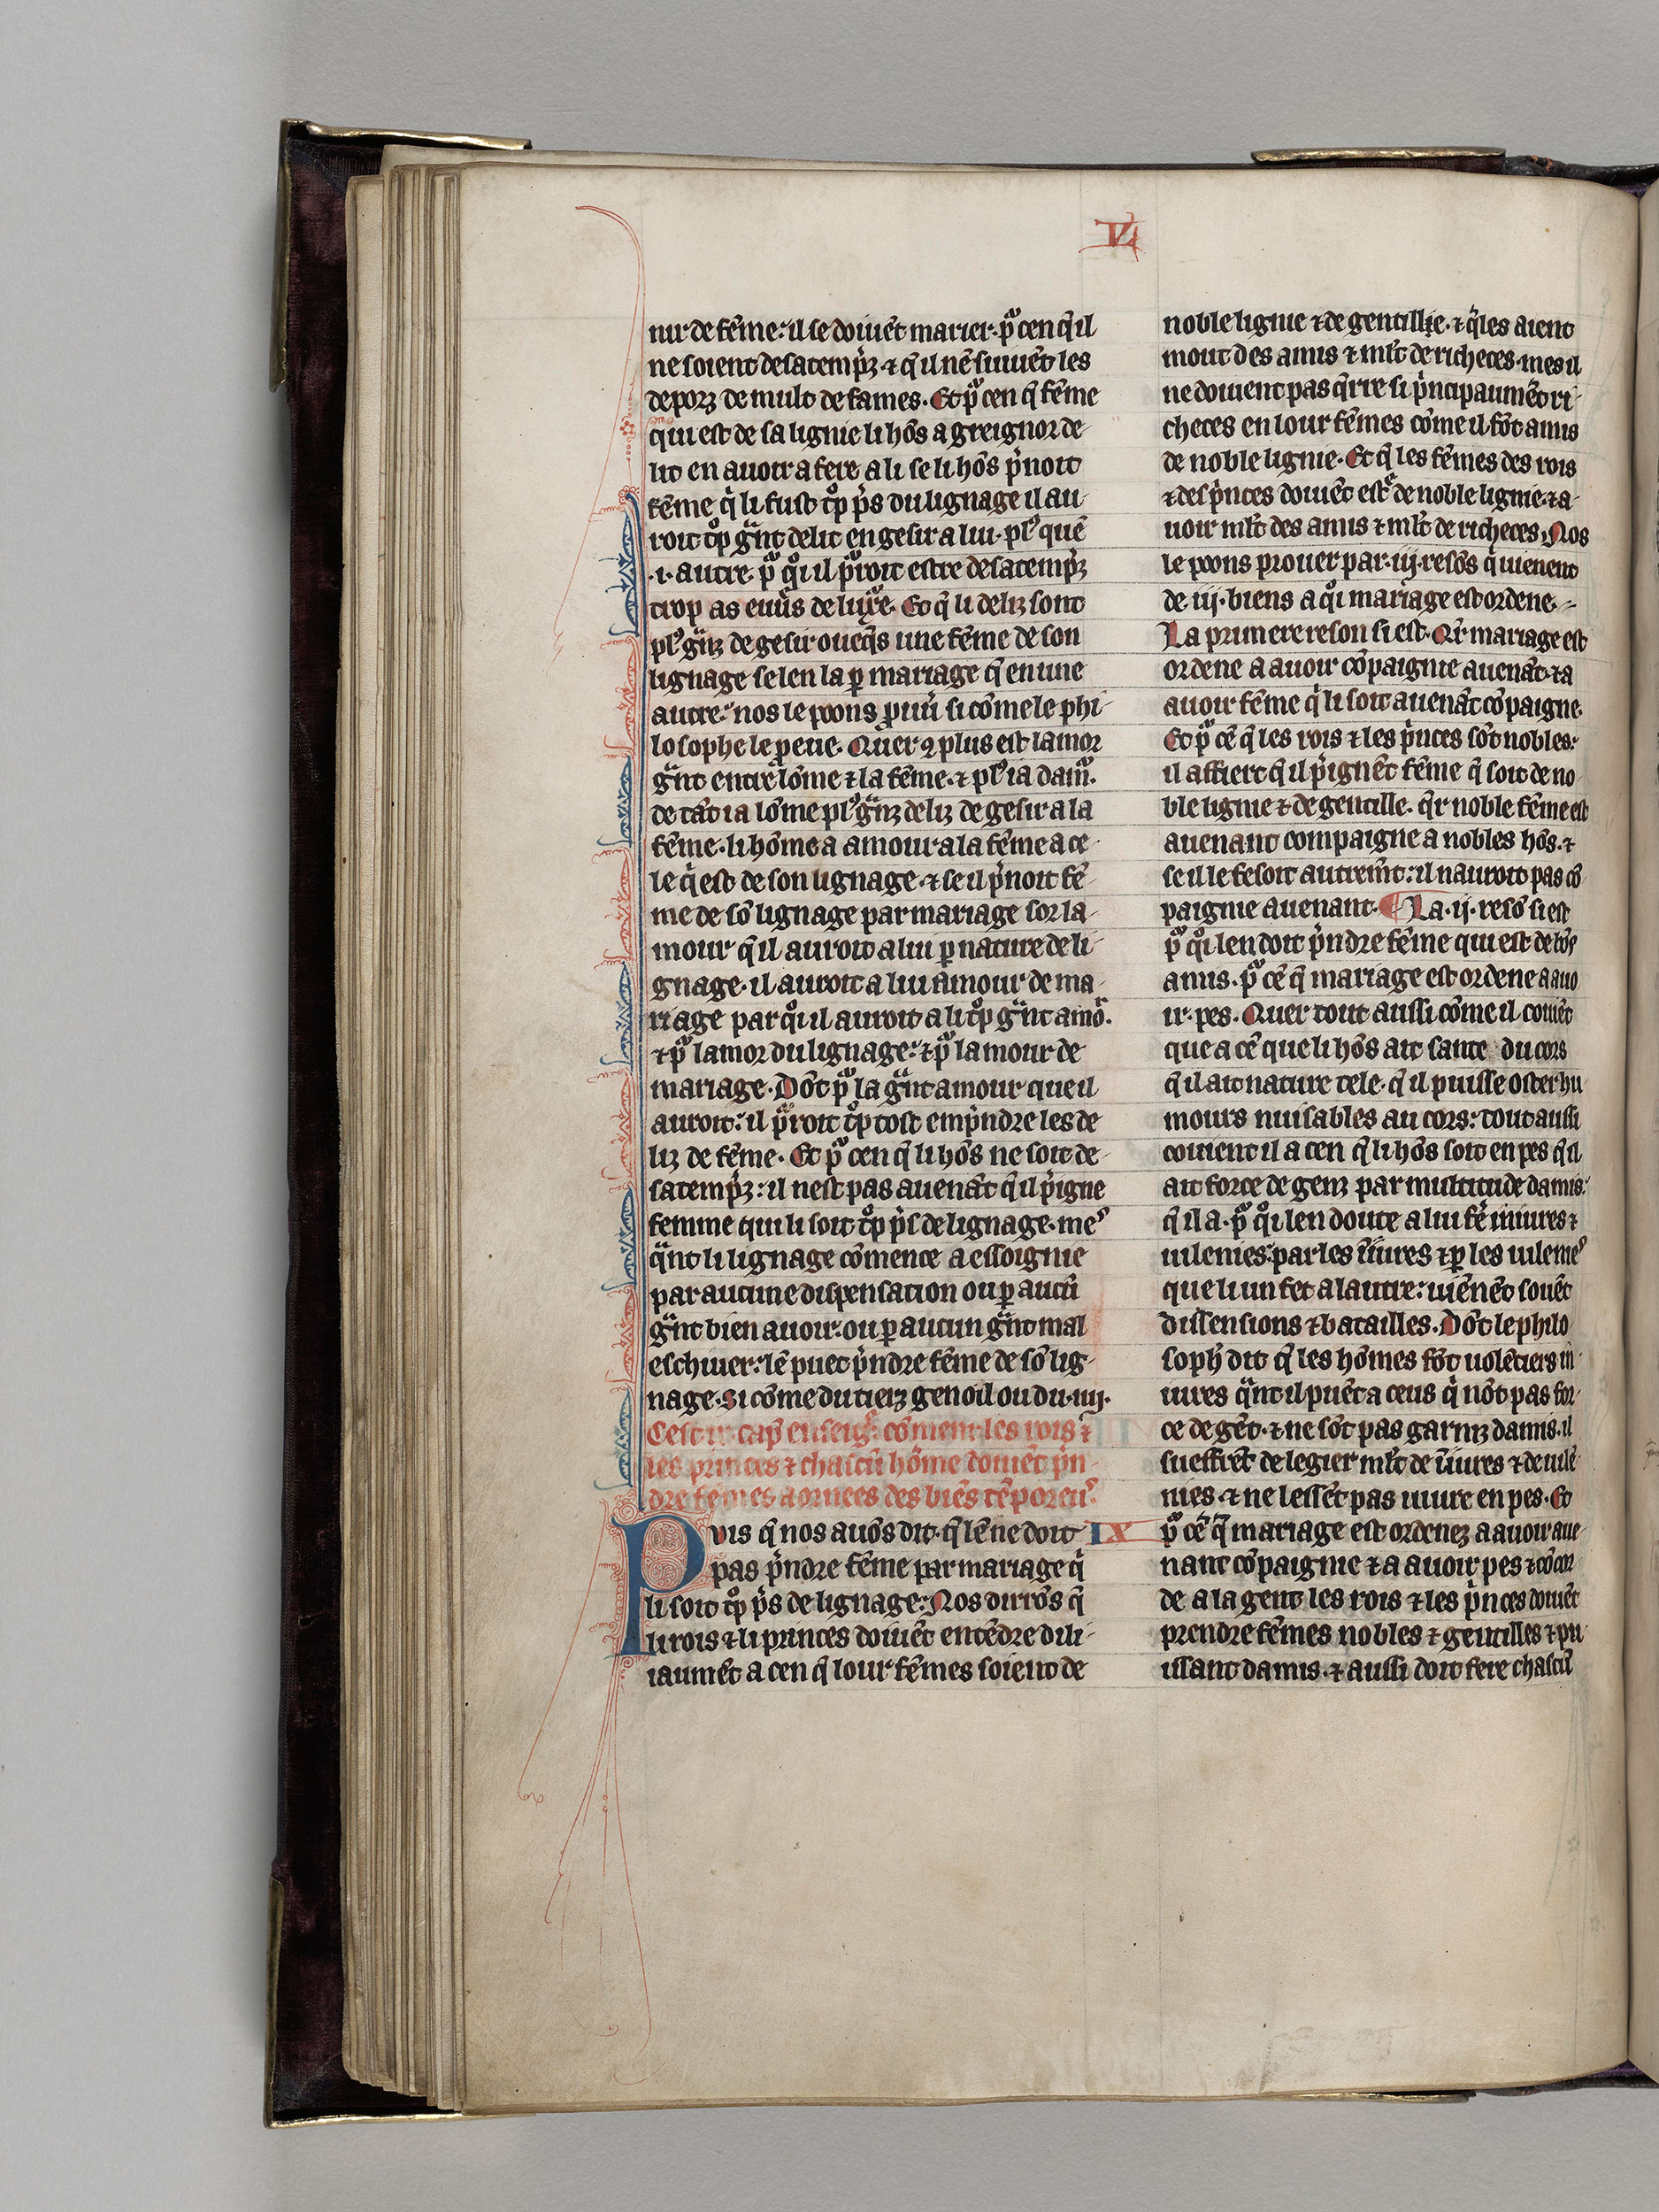 V
nir de fēme: il se doiuēt marier. pͦ cen q̄ il
ne soient desatemp̄z ⁊ q̄ il nē suiuēt les
deporz de mult de fames. Et pͦ cen q̄ fēme
qui est de sa lignie li hōs a greignor de-
lit en auoir a fere a li se li hōs p̄noit
fēme qͥ li fust tͦp p̄s du lignage il au-
roit tͦp gᵃnt delit en gesir a lui. plꝰ quē
.i. autre. pͦ qͦi il pͦroit estre desatemp̄z
trop as euūs de luxᵉe. Et q̄ li deliz sont
plꝰ gᵃnz de gesir oueq̄s une fēme de son
lignage selen la ꝑ mariage q̄ en une
autre: nos le poons ꝓuū si cōme le phi-
losophe le preue. Quer ꝯ plus est lamor
gᵃnt entre lōme ⁊ la fēme. ⁊ plꝰ ia damͦ.
de tāt ia lōme plꝰ gᵃnz deliz de gesir a la
fēme. li hōme a amour a la fēme a ce-
le qͥ est de son lignage. ⁊ se il p̄noit fē-
me de sō lignage par mariage sor la-
mour q̄ il auroit a lui ꝑ nature de li-
gnage. il auroit a lui amour de ma-
riage par qͦi il auroit a li tͦp gᵃnt amoͬ.
⁊ pͦ lamor du lignage: ⁊ pͦ lamour de
mariage. Dōt pͦ la gᵃnt amour que il
auroit: il pͦroit tͦp tost emp̄ndre les de
liz de fēme. Et pͦ cen q̄ li hōs ne soit de-
satemp̄z: il nest pas auenāt q̄ il p̄igne
femme qui li soit tͦp p̄s de lignage. meꝰ
qᵃnt li lignage cōmence a essoignie
par aucune dispensation ou ꝑ aucū
gᵃnt bien auoir: ou ꝑ aucun gᵃnt mal
eschiuer: lē puet p̄ndre fēme de sō lig-
nage. si cōme du tierz genoil ou du .iiij.
Cest ix cap̄ enseigͤ cōment les rois ⁊
les princes ⁊ chascū hōme doiuēt p̄n-
dre femes aornees des biēs tēporeuꝰ.
Puis q̄ nos auōs dit. q̄ lē ne doit IX
pas p̄ndre fēme par mariage qͥ
li soit tͦp p̄s de lignage: Nos dirōs q̄
li rois ⁊ li princes doiuēt entēdre dili-
iaumēt a cen q̄ lour fēmes soient de
noble lignie ⁊ de gentillece. ⁊ q̄les aient
mout des amis ⁊ ml̄t de richeces. mes il
ne doiuent pas q̄rre si p̄ncipaumēt ri-
checes en lour fēmes cōme il fōt amis
de noble lignie. Et q̄ les fēmes des rois
⁊ des p̄nces doiuēt estᵉ de noble lignie. ⁊ a-
uoir ml̄t des amis ⁊ ml̄t de richeces. Nos
le poons prouer par .iij. resōs q̄ uienent
de .iij. biens a qͦi mariage est ordene.
La primere reson si est. Qr̄ mariage est
ordene a auoir cōpaignie auenāt. ⁊ a
auoir fēme qͥ li soit auenāt cōpaigne.
Et pͦ cē q̄ les rois ⁊ les p̄nces sōt nobles:
il affiert q̄ il p̄ignēt fēme q̄ soit de no-
ble lignie ⁊ de gentille. qr̄ noble fēme est
auenant compaigne a nobles hōs. ⁊
se il le fesoit autremt: il nauroit pas cō-
paignie auenant. ¶ La .ij. resō si est
pͦ qͦi len doit p̄ndre fēme qui est de bōs
amis. pͦ cē q̄ mariage est ordene a auo
ir pes. Quer tout aussi cōme il couiēt
que a cē que li hōs ait sante du cors
q̄ il ait nature tele. q̄ il puisse oster hu
mours nuisables au cors: tout aussi
couient il a cen q̄ li hōs soit en pes q̄ il
ait force de genz par multitude damis:
q̄ il a. pͦ qͦi len doute a lui fē iniures ⁊
uilenies: par les iīures ⁊ ꝑ les uilenieꝰ
que li un fet a lautre: uiēnēt souēt
dissensions ⁊ batailles. Dōt le philo-
soph̄ dit q̄ les hōmes fōt uolētiers in-
iures qᵃnt il puēt a ceus qͥ nōt pas for-
ce de gēt. ⁊ ne sōt pas garniz damis. il
sueffrēt de legier ml̄t de iīures ⁊ de uile-
nies. ⁊ ne lessēt pas uiure en pes. Et
pͦ cē q̄ mariage est ordenez a auoir aue-
nant cōpaignie ⁊ a auoir pes ⁊ cōcor-
de a la gent les rois ⁊ les p̄nces doiuēt
prendre fēmes nobles ⁊ gentilles ⁊ pu-
issant damis. ⁊ aussi doit fere chascū